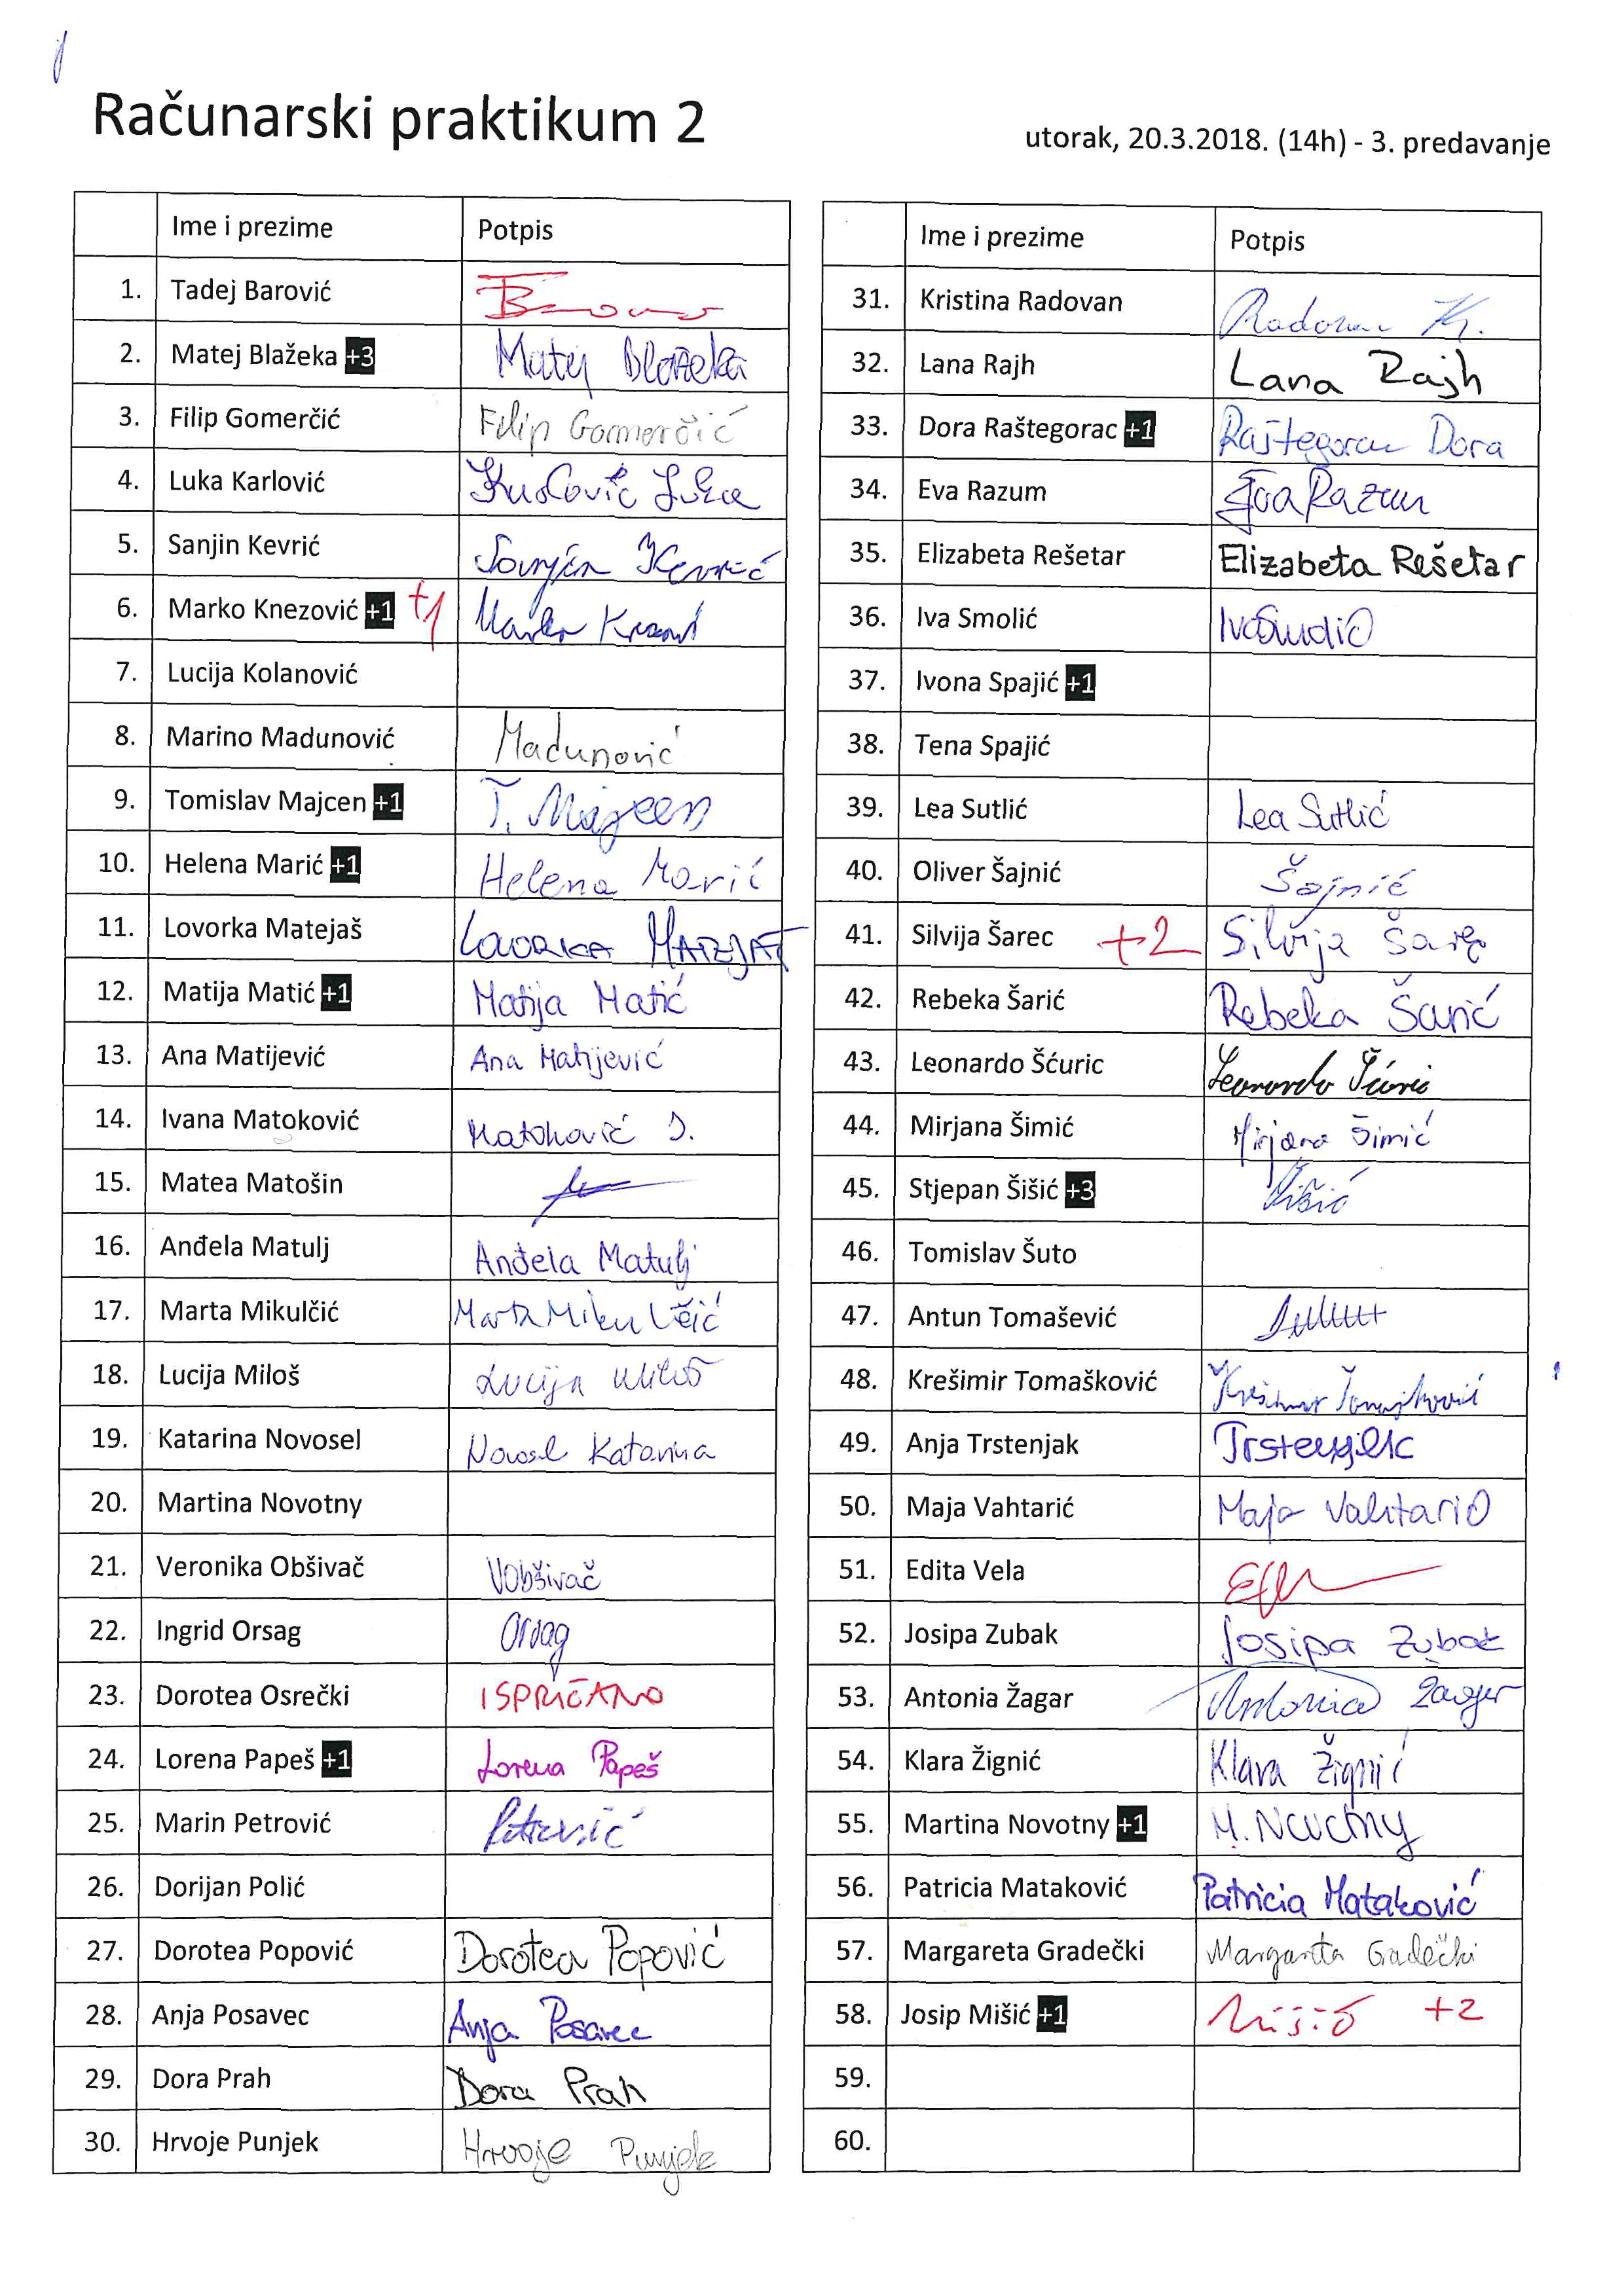 Računarski praktikum 2
utorak, 20.3.2018. (14h) - 3. predavanje
Ime i prezime Potpis
1. Tadej Barović
2. Matej Blažeka +3 Matej Blažeka
3. Filip Gomerčić Filip Gomerčić
4. Luka Karlović Karlović Luka
5. Sanjin Kevrić Sanjin Kevrić
6. Marko Knezović +1 +1 Marko
7. Lucija Kolanović
8. Marino Madunović Madunović
9. Tomislav Majcen +1 T. Majcen
10. Helena Marić +1 Helena Marić
11. Lovorka Matejaš LOVORKA MATEJAŠ
12. Matija Matić +1 Matija Matić
13. Ana Matijević Ana Matijević
14. Ivana Matoković Matoković I.
15. Matea Matošin
16. Anđela Matulj Anđela Matulj
17. Marta Mikulčić Marta Mikulčić
18. Lucija Miloš Lucija Miloš
19. Katarina Novosel Novosel Katarina
20. Martina Novotny
21. Veronika Obšivač VObšivač
22. Ingrid Orsag Orsag
23. Dorotea Osrečki ISPRIČANO
24. Lorena Papeš +1 Lorena Papeš
25. Marin Petrović Petrović
26. Dorijan Polić
27. Dorotea Popović Dorotea Popović
28. Anja Posavec Anja Posavec
29. Dora Prah Dora Prah
30. Hrvoje Punjek Hrvoje Punjek
Ime i prezime Potpis
31. Kristina Radovan Radovan K.
32. Lana Rajh Lana Rajh
33. Dora Raštegorac +1 Raštegorac Dora
34. Eva Razum Eva Razum
35. Elizabeta Rešetar Elizabeta Rešetar
36. Iva Smolić Iva Smolić
37. Ivona Spajić +1
38. Tena Spajić
39. Lea Sutlić Lea Sutlić
40. Oliver Šajnić Šajnić
41. Silvija Šarec +2 Silvija Šarec
42. Rebeka Šarić Rebeka Šarić
43. Leonardo Šćuric Leonardo Šćuric
44. Mirjana Šimić Mirjana Šimić
45. Stjepan Šišić +3 Šišić
46. Tomislav Šuto
47. Antun Tomašević
48. Krešimir Tomašković Krešimir Tomašković
49. Anja Trstenjak Trstenjak
50. Maja Vahtarić Maja Vahtarić
51. Edita Vela
52. Josipa Zubak Josipa Zubak
53. Antonia Žagar Antonia Žagar
54. Klara Žignić Klara Žignić
55. Martina Novotny +1 M. Novotny
56. Patricia Mataković Patricia Mataković
57. Margareta Gradečki Margareta Gradečki
58. Josip Mišić +1 Mišić +2
59.
60.